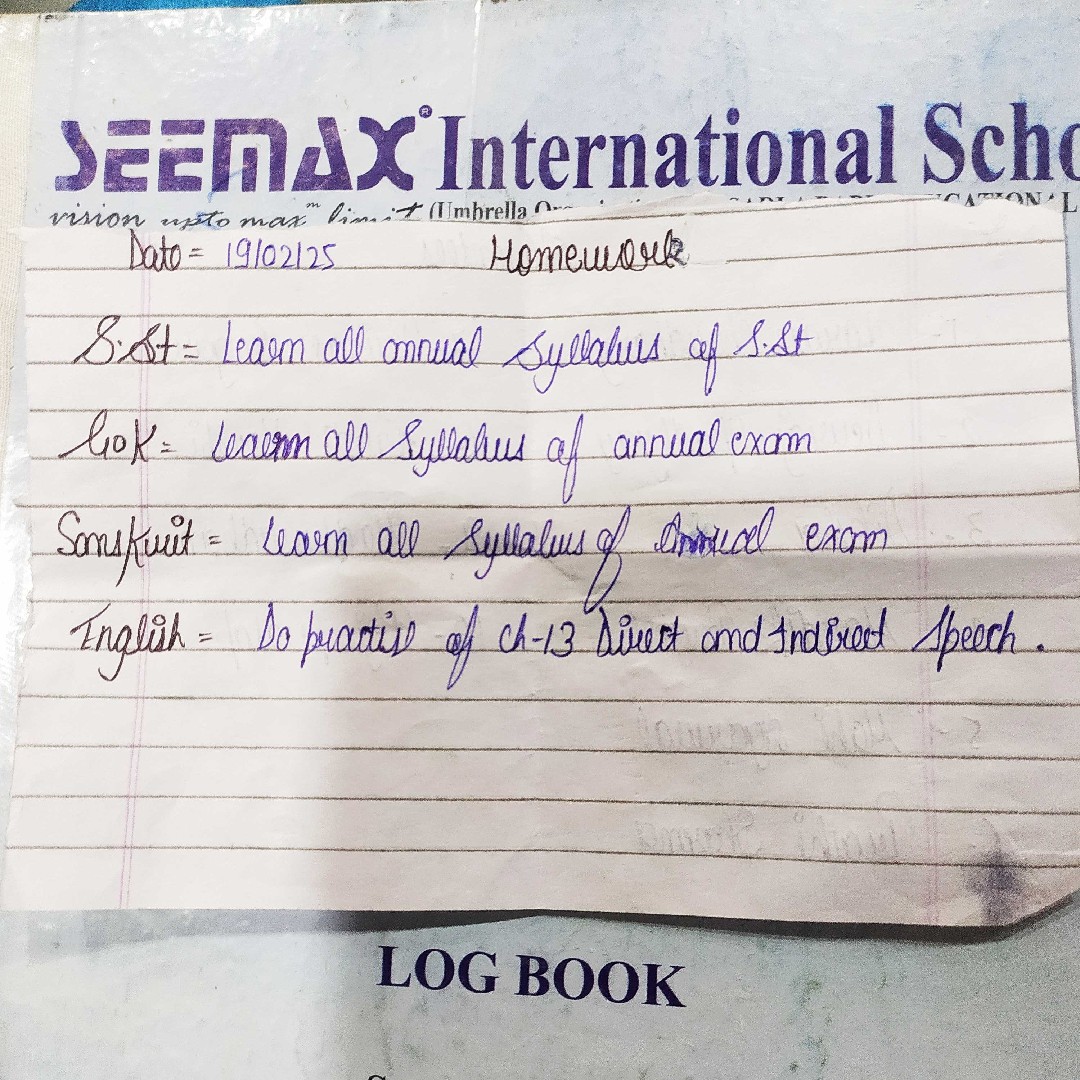 SEEMAX® International Scho
vision upto max™ limit (Umbrella
Date = 19/02/25 Homework
S.St = Learn all annual Syllabus of S.St
G.K = Learn all Syllabus of annual exam
Sanskrit = Learn all Syllabus of Annual exam
English = Do practise of Ch-13 Direct and Indirect Speech.
LOG BOOK